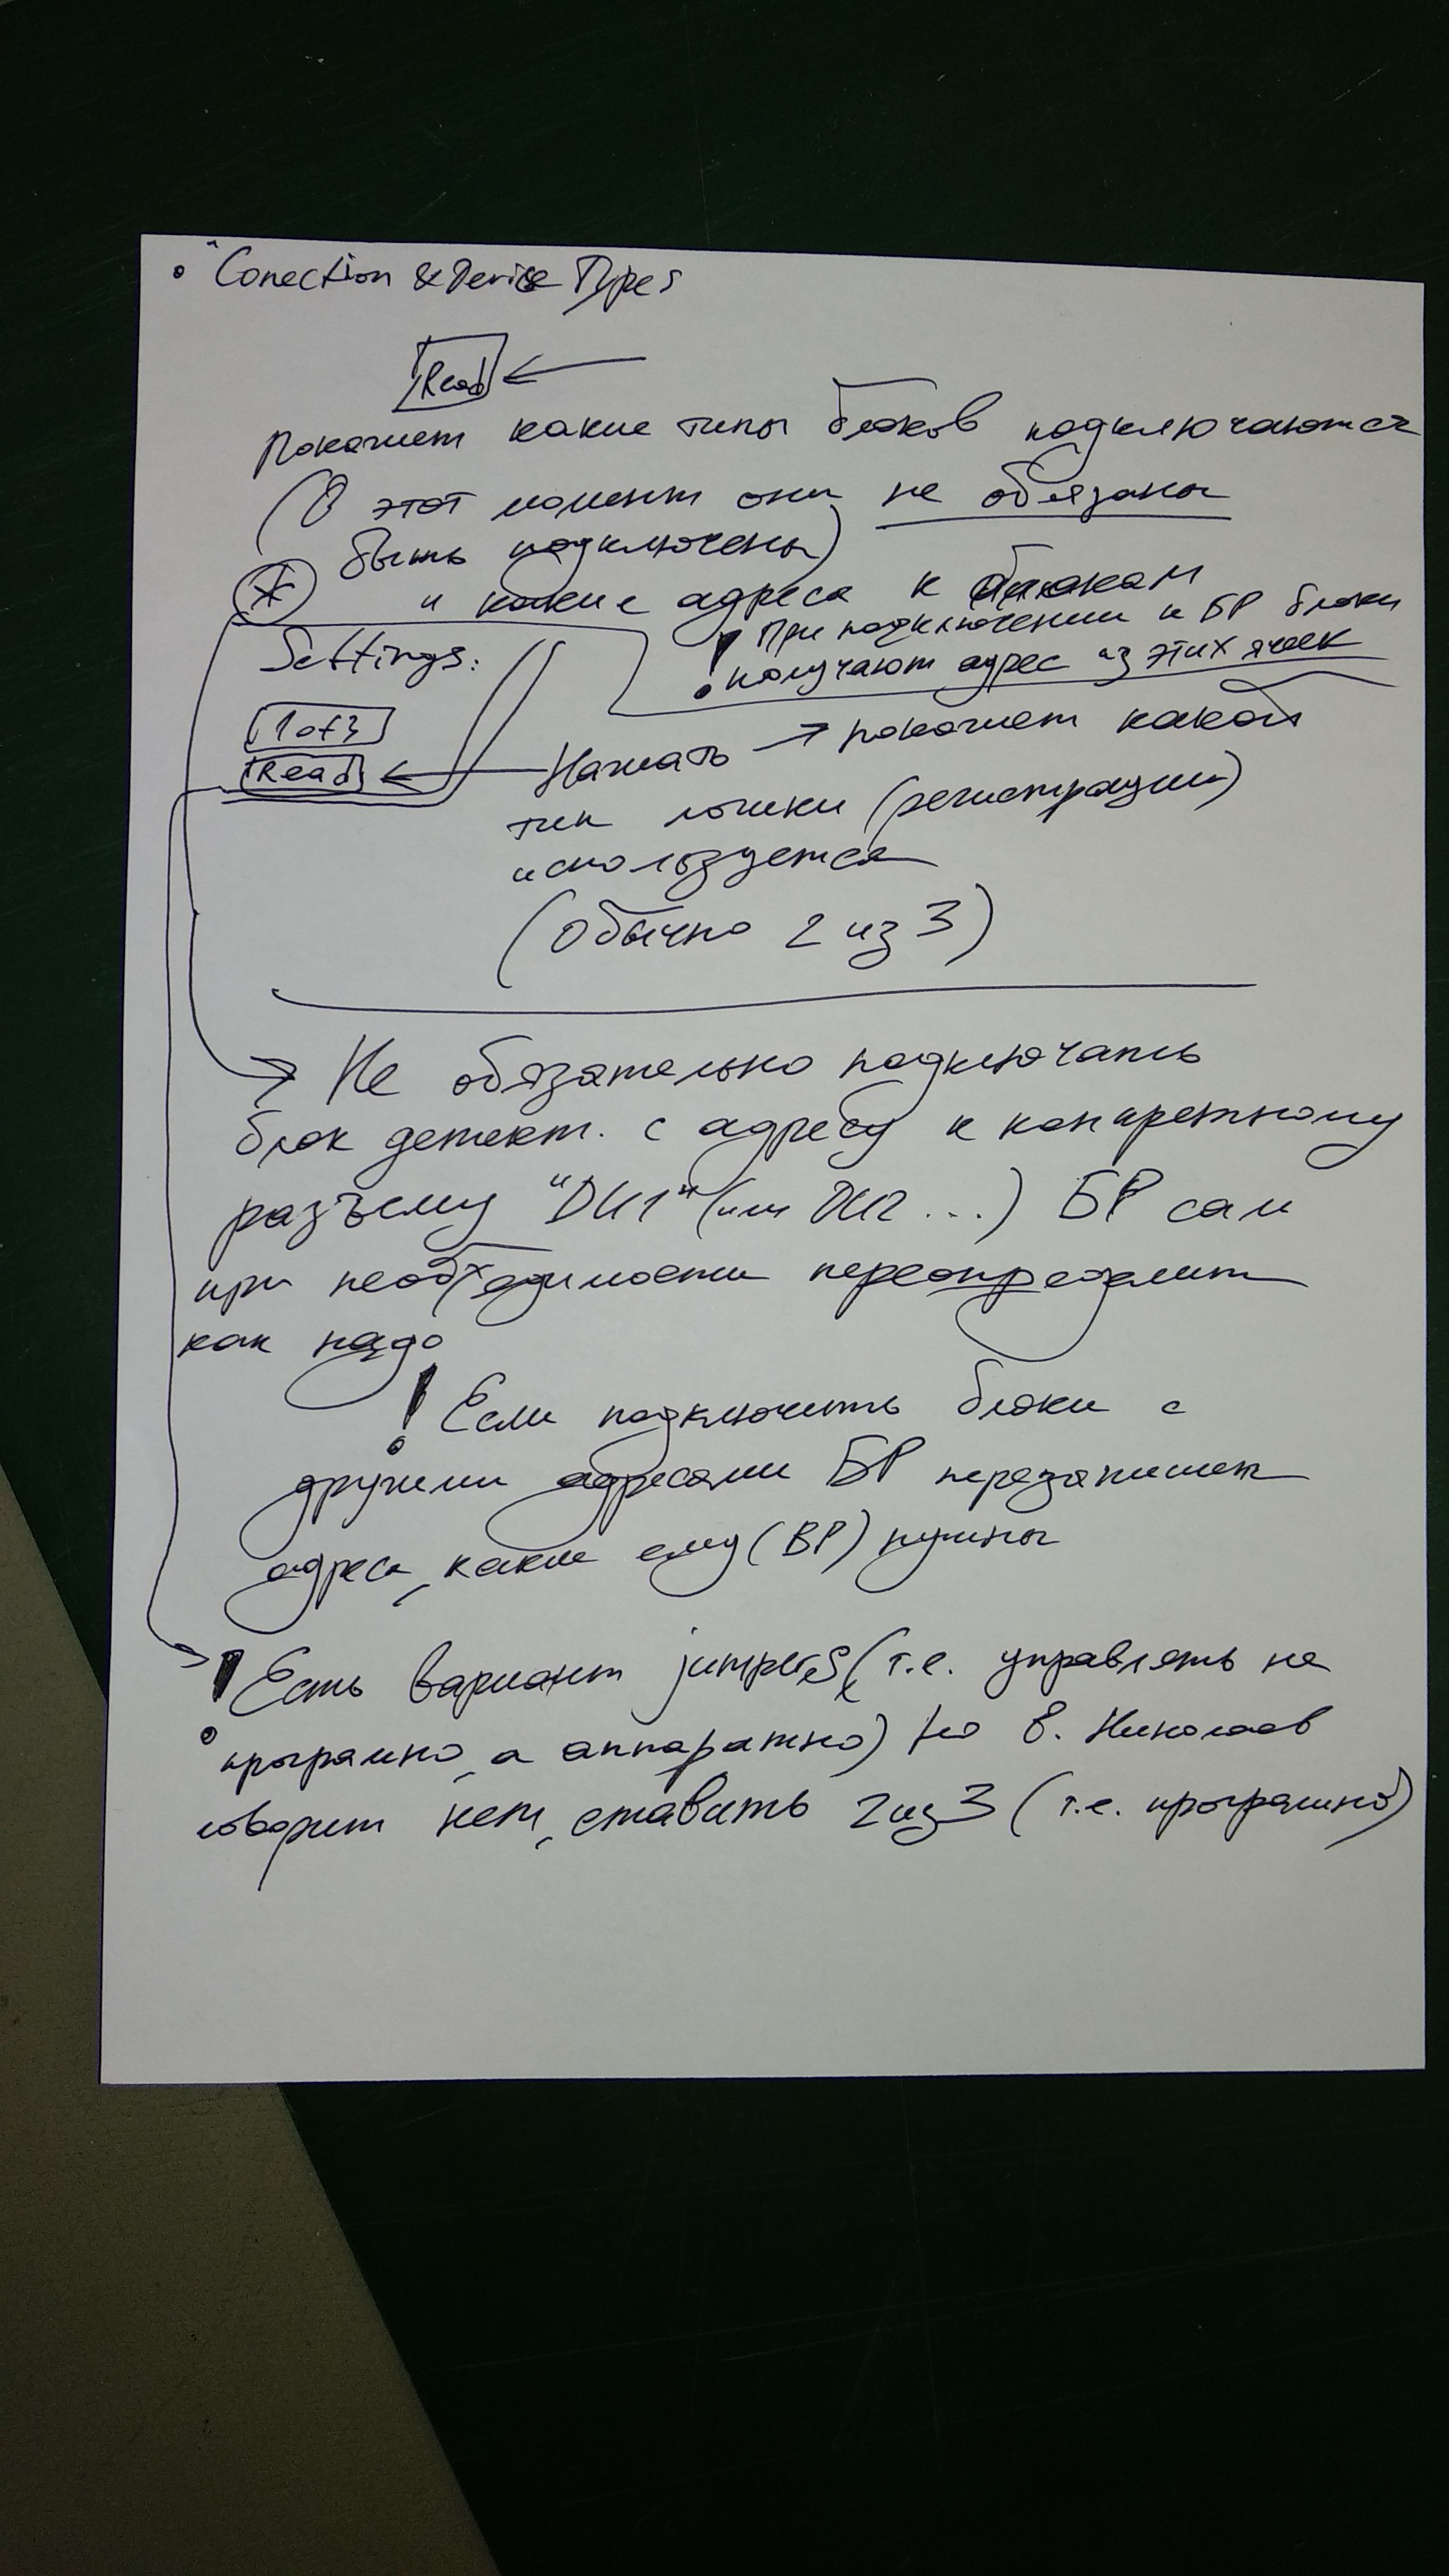 • "Conection & Device Types
Read
Покажет какие типы блоков подключаются
(В этот момент они не обязаны
быть подключены)
* и какие адреса к блокам
! При подключении к БР блоки
получают адрес из этих ячеек
Settings:
1 of 3
Read
Нажать → покажет какой
тип логики (регистрации)
используется
(Обычно 2 из 3)
→ Не обязательно подключать
блок детект. с адресу к конкретному
разъему "DU1" (или DU2 ...) БР сам
при необходимости переопределит
как надо
! Если подключить блоки с
другими адресами БР перезапишет
адреса, какие ему (БР) нужны
! Есть вариант jumpers (т.е. управлять не
програмно, а аппаратно) но В. Николаев
говорит нет, ставить 2 из 3 (т.е. програмно)